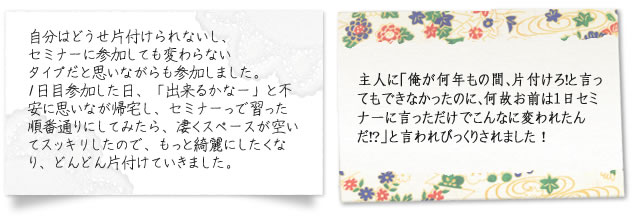 自分はどうせ片付けられないし、
セミナーに参加しても変わらない
タイプだと思いながらも参加しました。
1日目参加した日、「出来るかなー」と不
安に思いながら帰宅し、セミナーっで習った
順番通りにしてみたら、凄くスペースが空い
てスッキリしたので、もっと綺麗にしたくな
り、どんどん片付けていきました。
主人に「俺が何年もの間、片付けろ!と言っ
てもできなかったのに、何故お前は1日セミ
ナーに言っただけでこんなに変われたん
だ!?」と言われびっくりされました！